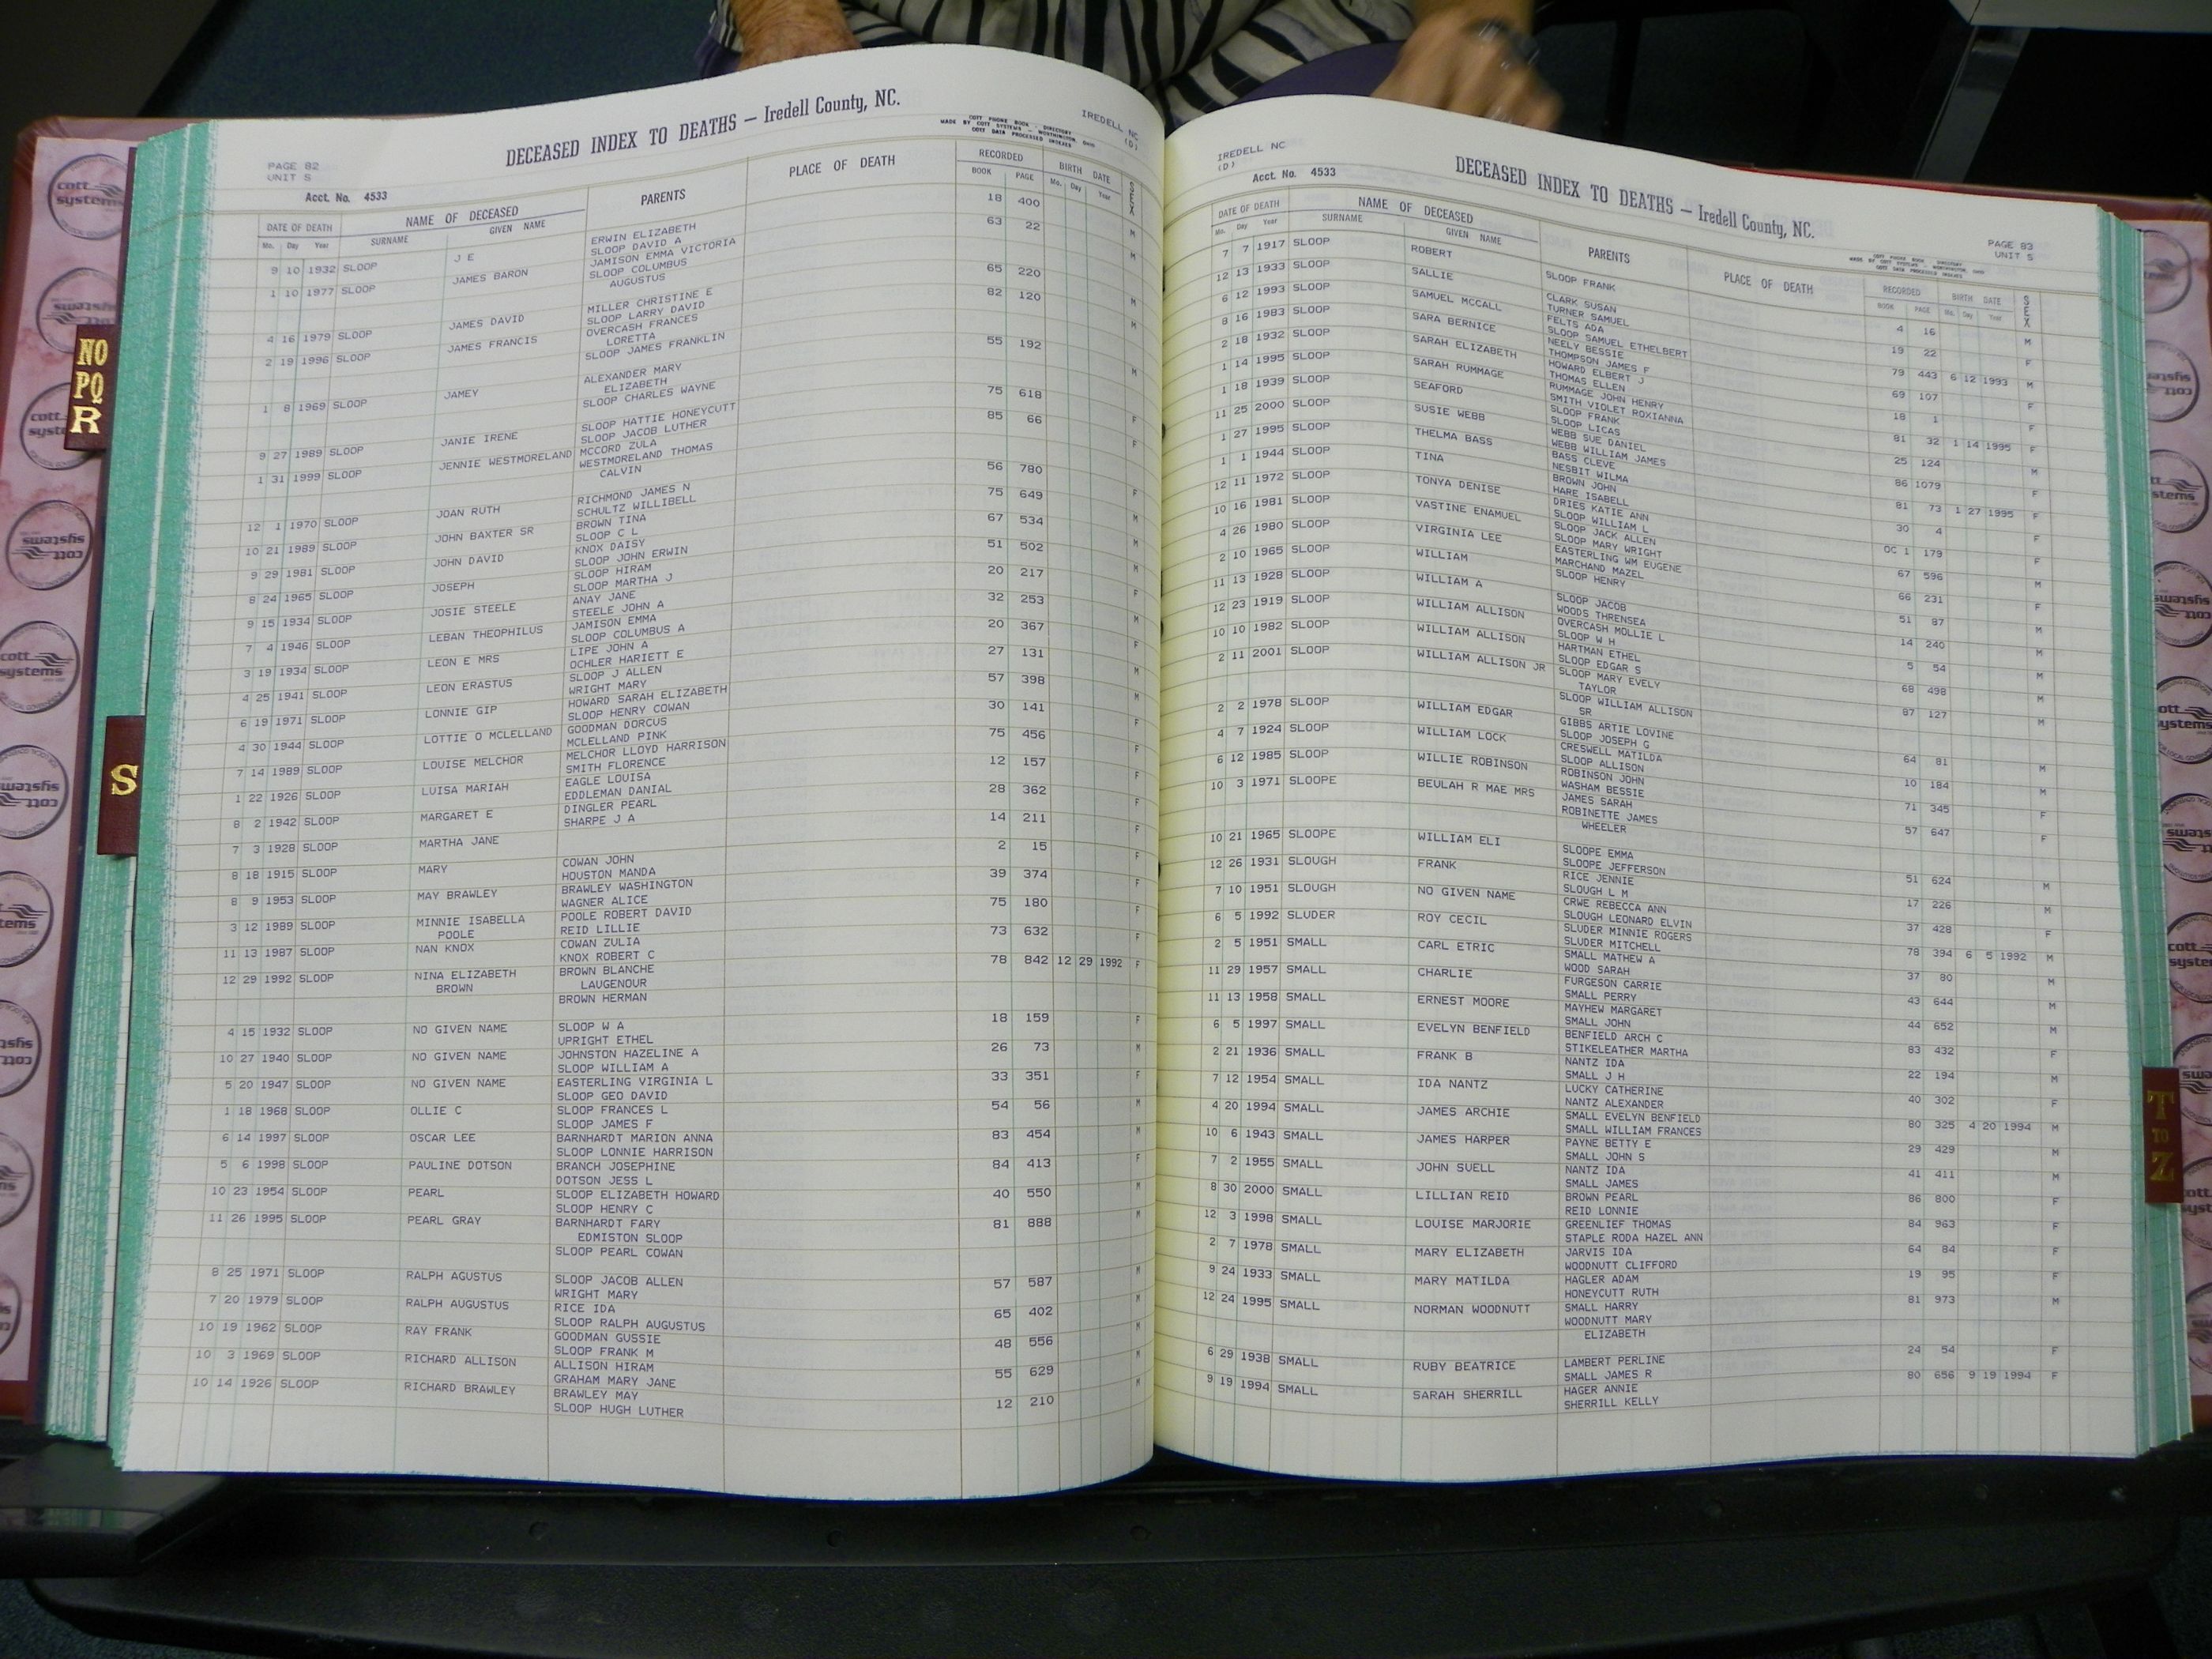 PAGE 82
UNIT S
DECEASED INDEX TO DEATHS — Iredell County, NC.
COTT PHONE BOOK - DIRECTORY
MADE BY COTT SYSTEMS - WORTHINGTON, OHIO
COTT DATA PROCESSED INDEXES
IREDELL NC
(D)
Acct. No. 4533
DATE OF DEATH NAME OF DECEASED PARENTS PLACE OF DEATH RECORDED BIRTH DATE SEX
Mo. Day Year SURNAME GIVEN NAME BOOK PAGE Mo. Day Year
9 10 1932 SLOOP J E ERWIN ELIZABETH 18 400 M
SLOOP DAVID A
1 10 1977 SLOOP JAMES BARON JAMISON EMMA VICTORIA 63 22 M
SLOOP COLUMBUS
AUGUSTUS
4 16 1979 SLOOP JAMES DAVID MILLER CHRISTINE E 65 220 M
SLOOP LARRY DAVID
2 19 1996 SLOOP JAMES FRANCIS OVERCASH FRANCES 82 120 M
LORETTA
SLOOP JAMES FRANKLIN
1 8 1969 SLOOP JAMEY ALEXANDER MARY 55 192 M
ELIZABETH
SLOOP CHARLES WAYNE
9 27 1989 SLOOP JANIE IRENE SLOOP HATTIE HONEYCUTT 75 618 F
SLOOP JACOB LUTHER
1 31 1999 SLOOP JENNIE WESTMORELAND MCCORD ZULA 85 66 F
WESTMORELAND THOMAS
CALVIN
12 1 1970 SLOOP JOAN RUTH RICHMOND JAMES N 56 780 F
SCHULTZ WILLIBELL
10 21 1989 SLOOP JOHN BAXTER SR BROWN TINA 75 649 M
SLOOP C L
9 29 1981 SLOOP JOHN DAVID KNOX DAISY 67 534 M
SLOOP JOHN ERWIN
8 24 1965 SLOOP JOSEPH SLOOP HIRAM 51 502 M
SLOOP MARTHA J
9 15 1934 SLOOP JOSIE STEELE ANAY JANE 20 217 F
STEELE JOHN A
7 4 1946 SLOOP LEBAN THEOPHILUS JAMISON EMMA 32 253 M
SLOOP COLUMBUS A
3 19 1934 SLOOP LEON E MRS LIPE JOHN A 20 367 F
OCHLER HARIETT E
4 25 1941 SLOOP LEON ERASTUS SLOOP J ALLEN 27 131 M
WRIGHT MARY
6 19 1971 SLOOP LONNIE GIP HOWARD SARAH ELIZABETH 57 398 M
SLOOP HENRY COWAN
4 30 1944 SLOOP LOTTIE O MCLELLAND GOODMAN DORCUS 30 141 F
MCLELLAND PINK
7 14 1989 SLOOP LOUISE MELCHOR MELCHOR LLOYD HARRISON 75 456 F
SMITH FLORENCE
1 22 1926 SLOOP LUISA MARIAH EAGLE LOUISA 12 157 F
EDDLEMAN DANIAL
8 2 1942 SLOOP MARGARET E DINGLER PEARL 28 362 F
SHARPE J A
7 3 1928 SLOOP MARTHA JANE 14 211 F
8 18 1915 SLOOP MARY COWAN JOHN 2 15 F
HOUSTON MANDA
8 9 1953 SLOOP MAY BRAWLEY BRAWLEY WASHINGTON 39 374 F
WAGNER ALICE
3 12 1989 SLOOP MINNIE ISABELLA POOLE ROBERT DAVID 75 180 F
POOLE REID LILLIE
11 13 1987 SLOOP NAN KNOX COWAN ZULIA 73 632 F
KNOX ROBERT C
12 29 1992 SLOOP NINA ELIZABETH BROWN BLANCHE 78 842 12 29 1992 F
BROWN LAUGENOUR
BROWN HERMAN
4 15 1932 SLOOP NO GIVEN NAME SLOOP W A 18 159 F
UPRIGHT ETHEL
10 27 1940 SLOOP NO GIVEN NAME JOHNSTON HAZELINE A 26 73 M
SLOOP WILLIAM A
5 20 1947 SLOOP NO GIVEN NAME EASTERLING VIRGINIA L 33 351 F
SLOOP GEO DAVID
1 18 1968 SLOOP OLLIE C SLOOP FRANCES L 54 56 M
SLOOP JAMES F
6 14 1997 SLOOP OSCAR LEE BARNHARDT MARION ANNA 83 454 M
SLOOP LONNIE HARRISON
5 6 1998 SLOOP PAULINE DOTSON BRANCH JOSEPHINE 84 413 F
DOTSON JESS L
10 23 1954 SLOOP PEARL SLOOP ELIZABETH HOWARD 40 550 M
SLOOP HENRY C
11 26 1995 SLOOP PEARL GRAY BARNHARDT FARY 81 888 M
EDMISTON SLOOP
SLOOP PEARL COWAN
8 25 1971 SLOOP RALPH AGUSTUS SLOOP JACOB ALLEN 57 587 M
WRIGHT MARY
7 20 1979 SLOOP RALPH AUGUSTUS RICE IDA 65 402 M
SLOOP RALPH AUGUSTUS
10 19 1962 SLOOP RAY FRANK GOODMAN GUSSIE 48 556 M
SLOOP FRANK M
10 3 1969 SLOOP RICHARD ALLISON ALLISON HIRAM 55 629 M
GRAHAM MARY JANE
10 14 1926 SLOOP RICHARD BRAWLEY BRAWLEY MAY 12 210 M
SLOOP HUGH LUTHER
IREDELL NC
(D)
DECEASED INDEX TO DEATHS — Iredell County, NC.
PAGE 83
UNIT S
Acct. No. 4533
DATE OF DEATH NAME OF DECEASED PARENTS PLACE OF DEATH RECORDED BIRTH DATE SEX
Mo. Day Year SURNAME GIVEN NAME BOOK PAGE Mo. Day Year
7 7 1917 SLOOP ROBERT SLOOP FRANK 4 16 M
12 13 1933 SLOOP SALLIE CLARK SUSAN 19 22 F
TURNER SAMUEL
6 12 1993 SLOOP SAMUEL MCCALL FELTS ADA 79 443 6 12 1993 M
SLOOP SAMUEL ETHELBERT
8 16 1983 SLOOP SARA BERNICE NEELY BESSIE 69 107 F
THOMPSON JAMES F
2 18 1932 SLOOP SARAH ELIZABETH HOWARD ELBERT J 18 1 F
THOMAS ELLEN
1 14 1995 SLOOP SARAH RUMMAGE RUMMAGE JOHN HENRY 81 32 1 14 1995 F
SMITH VIOLET ROXIANNA
1 18 1939 SLOOP SEAFORD SLOOP FRANK 25 124 M
SLOOP LICAS
11 25 2000 SLOOP SUSIE WEBB WEBB SUE DANIEL 86 1079 F
WEBB WILLIAM JAMES
1 27 1995 SLOOP THELMA BASS BASS CLEVE 81 73 1 27 1995 F
NESBIT WILMA
1 1 1944 SLOOP TINA BROWN JOHN 30 4 F
HARE ISABELL
12 11 1972 SLOOP TONYA DENISE DRIES KATIE ANN OC 1 179 F
SLOOP WILLIAM L
10 16 1981 SLOOP VASTINE ENAMUEL SLOOP JACK ALLEN 67 596 M
SLOOP MARY WRIGHT
4 26 1980 SLOOP VIRGINIA LEE EASTERLING WM EUGENE 66 231 F
MARCHAND MAZEL
2 10 1965 SLOOP WILLIAM SLOOP HENRY 51 87 M
11 13 1928 SLOOP WILLIAM A SLOOP JACOB 14 240 M
WOODS THRENSEA
12 23 1919 SLOOP WILLIAM ALLISON OVERCASH MOLLIE L 5 54 M
SLOOP W H
10 10 1982 SLOOP WILLIAM ALLISON HARTMAN ETHEL 68 498 M
SLOOP EDGAR S
2 11 2001 SLOOP WILLIAM ALLISON JR SLOOP MARY EVELY 87 127 M
TAYLOR
SLOOP WILLIAM ALLISON
SR
2 2 1978 SLOOP WILLIAM EDGAR GIBBS ARTIE LOVINE 64 81 M
SLOOP JOSEPH G
4 7 1924 SLOOP WILLIAM LOCK CRESWELL MATILDA 10 184 M
SLOOP ALLISON
6 12 1985 SLOOP WILLIE ROBINSON ROBINSON JOHN 71 345 F
WASHAM BESSIE
10 3 1971 SLOOPE BEULAH R MAE MRS JAMES SARAH 57 647 F
ROBINETTE JAMES
WHEELER
10 21 1965 SLOOPE WILLIAM ELI SLOOPE EMMA 51 624 M
SLOOPE JEFFERSON
12 26 1931 SLOUGH FRANK RICE JENNIE 17 226 M
SLOUGH L M
7 10 1951 SLOUGH NO GIVEN NAME CRWE REBECCA ANN 37 428 F
SLOUGH LEONARD ELVIN
6 5 1992 SLUDER ROY CECIL SLUDER MINNIE ROGERS 78 394 6 5 1992 M
SLUDER MITCHELL
2 5 1951 SMALL CARL ETRIC SMALL MATHEW A 37 80 M
WOOD SARAH
11 29 1957 SMALL CHARLIE FURGESON CARRIE 43 644 M
SMALL PERRY
11 13 1958 SMALL ERNEST MOORE MAYHEW MARGARET 44 652 M
SMALL JOHN
6 5 1997 SMALL EVELYN BENFIELD BENFIELD ARCH C 83 432 F
STIKELEATHER MARTHA
2 21 1936 SMALL FRANK B NANTZ IDA 22 194 M
SMALL J H
7 12 1954 SMALL IDA NANTZ LUCKY CATHERINE 40 302 F
NANTZ ALEXANDER
4 20 1994 SMALL JAMES ARCHIE SMALL EVELYN BENFIELD 80 325 4 20 1994 M
SMALL WILLIAM FRANCES
10 6 1943 SMALL JAMES HARPER PAYNE BETTY E 29 429 M
SMALL JOHN S
7 2 1955 SMALL JOHN SUELL NANTZ IDA 41 411 M
SMALL JAMES
8 30 2000 SMALL LILLIAN REID BROWN PEARL 86 800 F
REID LONNIE
12 3 1998 SMALL LOUISE MARJORIE GREENLIEF THOMAS 84 963 F
STAPLE RODA HAZEL ANN
2 7 1978 SMALL MARY ELIZABETH JARVIS IDA 64 84 F
WOODNUTT CLIFFORD
9 24 1933 SMALL MARY MATILDA HAGLER ADAM 19 95 F
HONEYCUTT RUTH
12 24 1995 SMALL NORMAN WOODNUTT SMALL HARRY 81 973 M
WOODNUTT MARY
ELIZABETH
6 29 1938 SMALL RUBY BEATRICE LAMBERT PERLINE 24 54 F
SMALL JAMES R
9 19 1994 SMALL SARAH SHERRILL HAGER ANNIE 80 656 9 19 1994 F
SHERRILL KELLY
NO
PQ
R
S
T
TO
Z
cott
systems